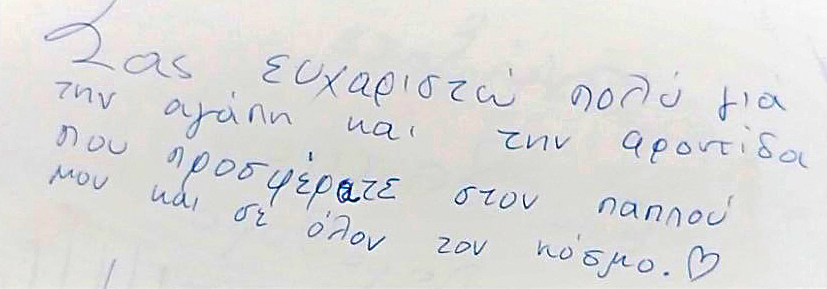 Σας ευχαριστώ πολύ για
την αγάπη και την φροντίδα
που προσφέρατε στον παππού
μου και σε όλον τον κόσμο. ♡